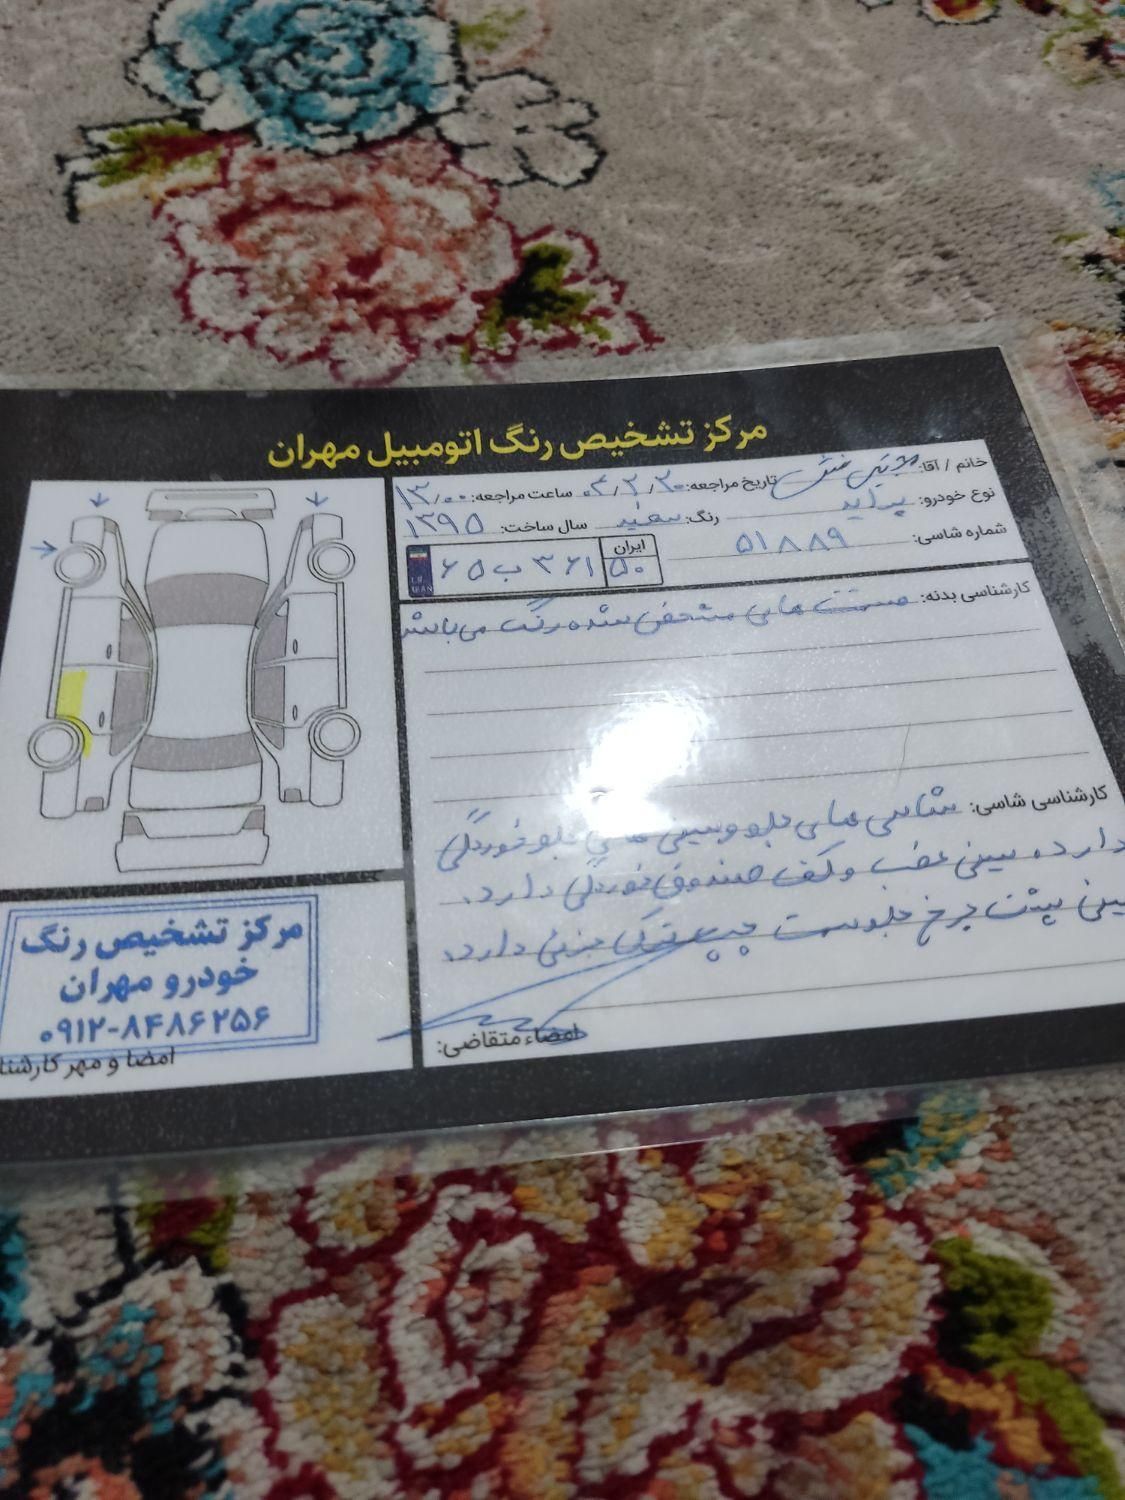 مرکز تشخیص رنگ اتومبیل مهران
خانم / آقا: تاریخ مراجعه: ۰۴/۲/۲۰ ساعت مراجعه: ۱۳/۰۰
نوع خودرو: پراید رنگ: سفید سال ساخت: ۱۳۹۵
شماره شاسی: ۵۱۸۸۹
ایران
۶۵ ب ۳۶۱ ۵۰
I.R.
IRAN
کارشناسی بدنه: قسمت های مشخص شده رنگ می باشد
کارشناسی شاسی: شاسی های جلو و سینی های جلو خوردگی
دارد. سینی عقب و کف صندوق خوردگی دارد.
سینی پشت چرخ جلو سمت چپ ترک جزئی دارد.
امضاء متقاضی:
مرکز تشخیص رنگ
خودرو مهران
۰۹۱۲-۸۴۸۶۲۵۶
امضا و مهر کارشنا